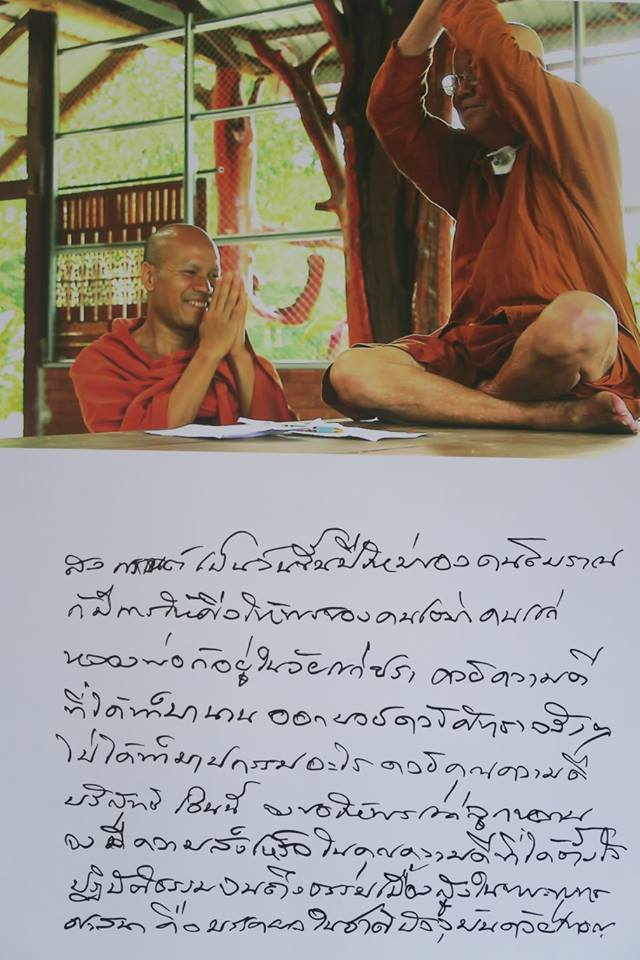 สงกรานต์ เป็นวันขึ้นปีใหม่ของคนโบราณ
ก็มีการให้ศีลให้พรของคนเฒ่าคนแก่
หลวงพ่อก็อยู่ในวัยแก่ชรา ด้วยความดี
ที่ได้ทำมานาน ออกบวชด้วยศรัทธาจริงๆ
ไม่ได้ทำบาปกรรมอะไร ด้วยคุณความดี
บริสุทธิ์ เช่นนี้ จงอวยพรแก่ลูกหลาน
จงมีความสำเร็จ ในคุณความดีที่ได้ตั้งใจ
ปฏิบัติธรรม จนถึงธรรมเบื้องสูงในพระพุทธ
ศาสนา คือมรรคผลในชาติปัจจุบันด้วยเทอญ